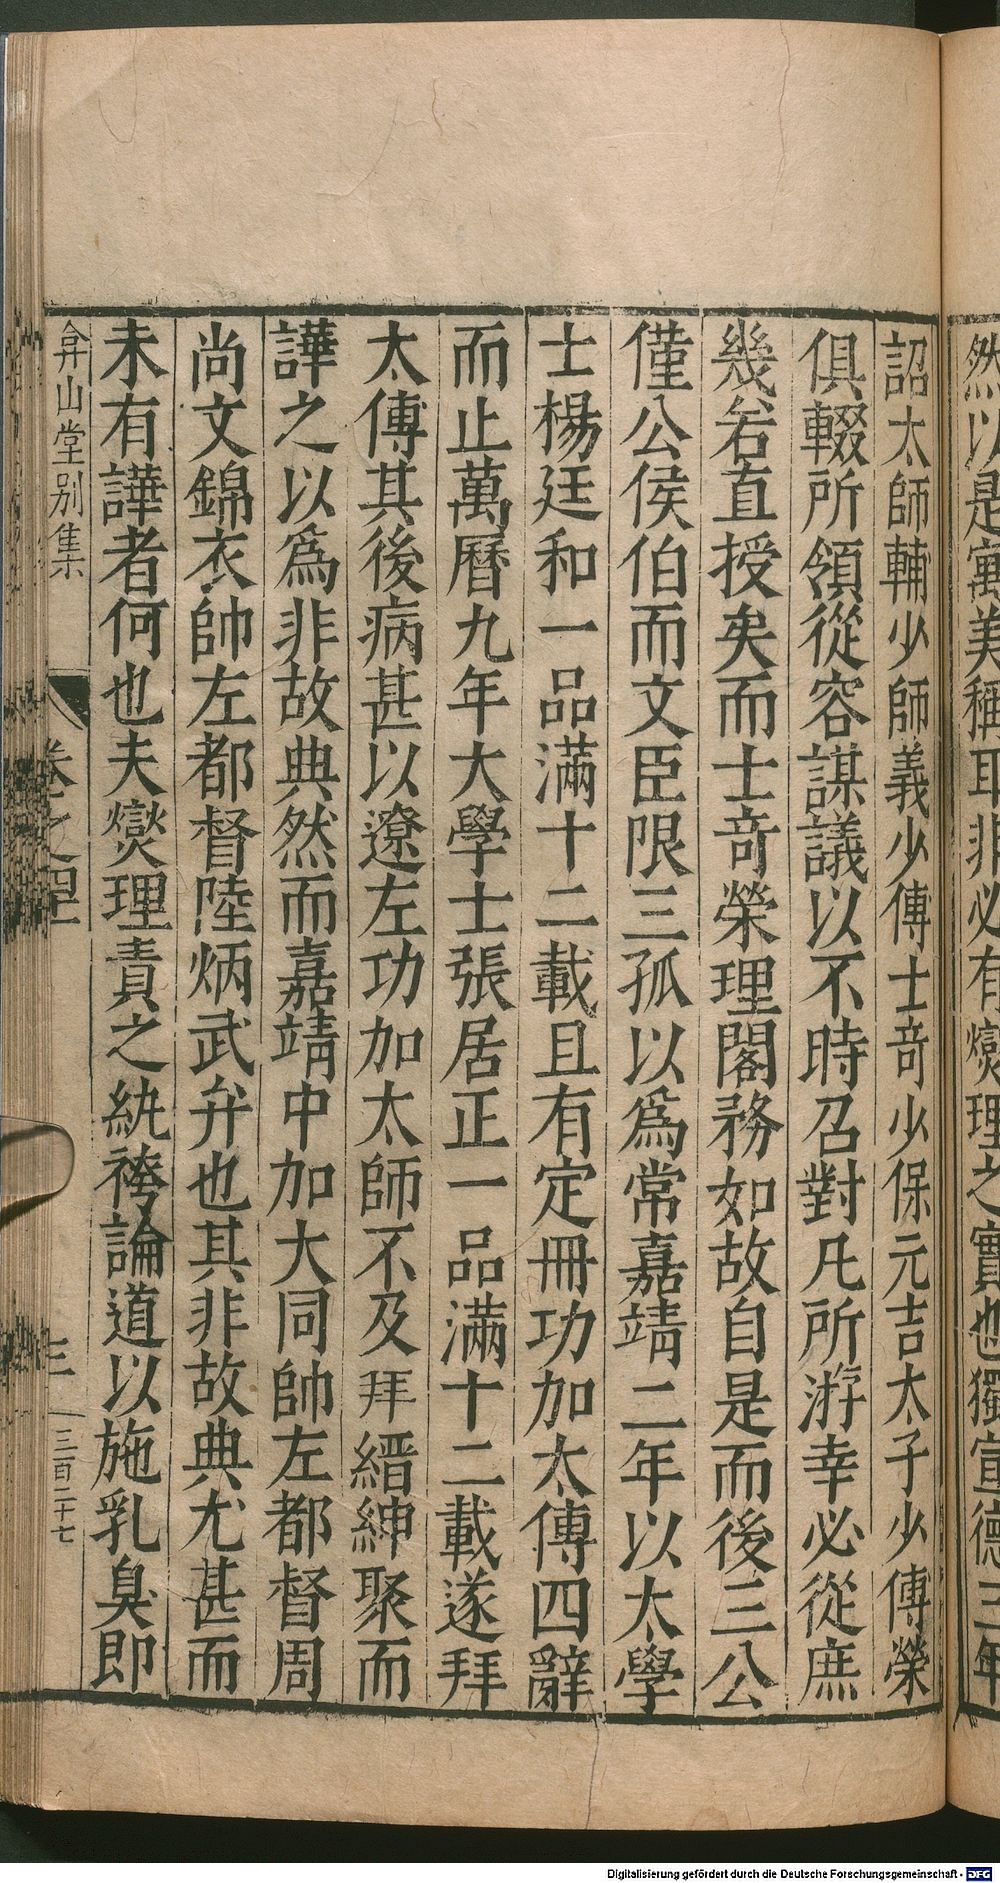 然以是寓美稱耳非必有燮理之實也獨宣德三年
詔太師輔少師義少傅士奇少保元吉太子少傅榮
俱輟所領從容謀議以不時召對凡所游幸必從庶
幾若直授矣而士奇榮理閣務如故自是而後三公
僅公侯伯而文臣限三孤以爲常嘉靖二年以太學
士楊廷和一品滿十二載且有定冊功加太傅四辭
而止萬曆九年大學士張居正一品滿十二載遂拜
太傅其後病甚以遼左功加太師不及拜縉紳聚而
譁之以爲非故典然而嘉靖中加大同帥左都督周
尚文錦衣帥左都督陸炳武弁也其非故典尤甚而
未有譁者何也夫燮理責之紈袴論道以施乳臭即
弇山堂別集 卷之四 三 三百二十七
Digitalisierung gefördert durch die Deutsche Forschungsgemeinschaft - DFG